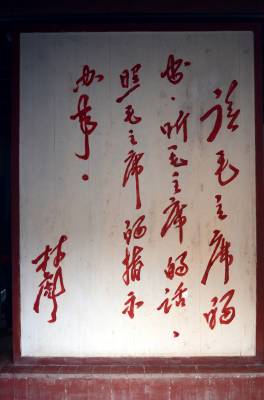 读毛主席的
书、听毛主席的话、
照毛主席的指示
办事。
林彪